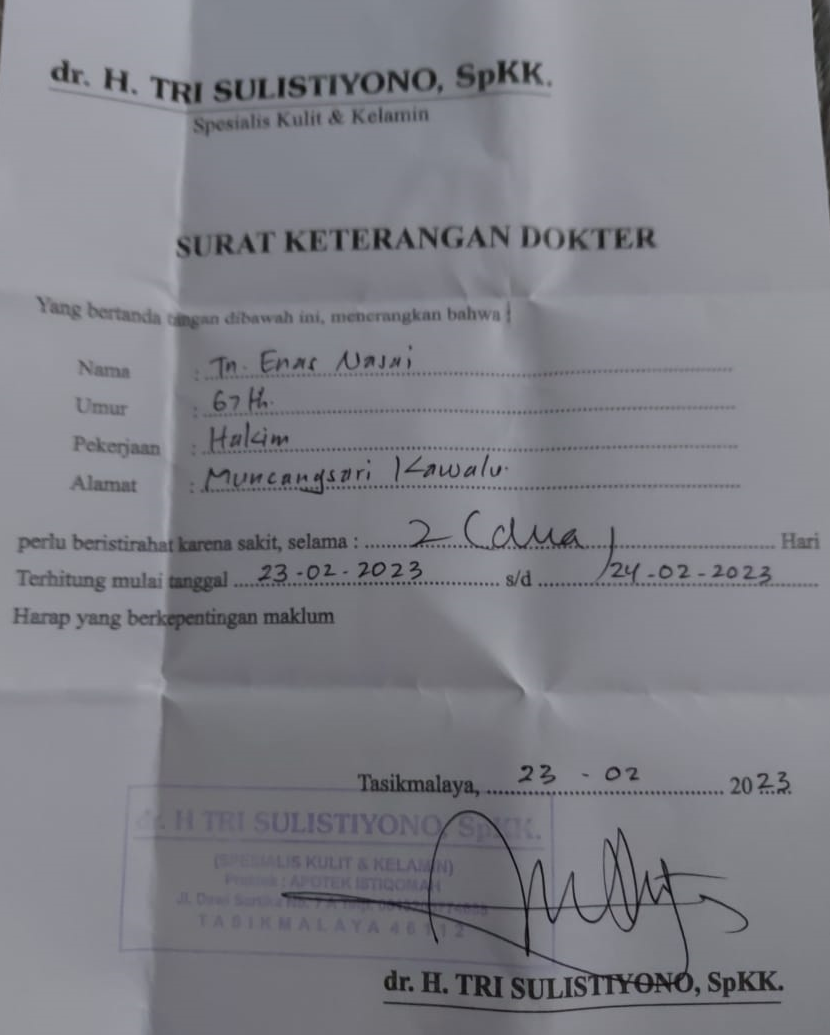 dr. H. TRI SULISTIYONO, SpKK.
Spesialis Kulit & Kelamin
SURAT KETERANGAN DOKTER
Yang bertanda tangan dibawah ini, menerangkan bahwa :
Nama : Tn. Enas Nasai
Umur : 67 th.
Pekerjaan : Hakim
Alamat : Muncangsari Kawalu.
perlu beristirahat karena sakit, selama : 2 (dua) Hari
Terhitung mulai tanggal 23-02-2023 s/d 24-02-2023
Harap yang berkepentingan maklum
Tasikmalaya, 23 - 02 2023
dr. H TRI SULISTIYONO, SpKK.
(SPESIALIS KULIT & KELAMIN)
APOTEK ISTIQOMAH
Jl. Dewi Sartika No.
TASIKMALAYA 46112
dr. H. TRI SULISTIYONO, SpKK.